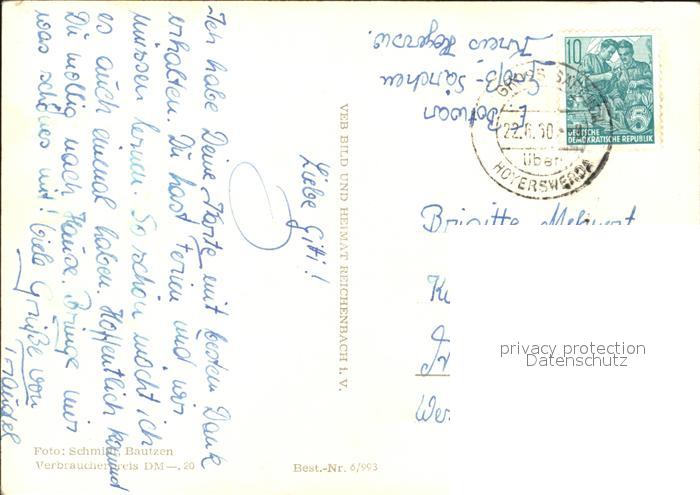 Liebe Giti!
Ich habe Deine Karte mit bestem Dank
erhalten. Du hast Ferien und wir
müssen lernen. So schön möcht ich
es auch einmal haben. Hoffentlich kommst
Du mollig nach Hause. Bringe mir
was schönes mit! Viele Grüße von
Traudel
VEB BILD UND HEIMAT REICHENBACH i. V.
Foto: Schmidt, Bautzen
Verbraucherpreis DM —,20
Best.-Nr. 6/993
Groß-Särchen
Kreis Hoyersw.
10
5
DEUTSCHE
DEMOKRATISCHE REPUBLIK
GROSS SÄRCHEN
22.6.60
über
HOYERSWERDA
Brigitte
privacy protection
Datenschutz